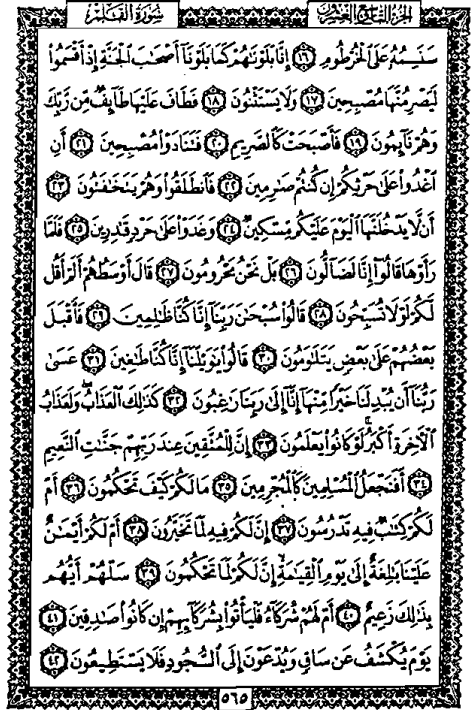 سُورَةُ القَلَمِ
الجُزْءُ التَّاسِعُ وَالعِشْرُونَ
سَنَسِمُهُۥ عَلَى ٱلْخُرْطُومِ ١٦ إِنَّا بَلَوْنَٰهُمْ كَمَا بَلَوْنَآ أَصْحَٰبَ ٱلْجَنَّةِ إِذْ أَقْسَمُوا۟
لَيَصْرِمُنَّهَا مُصْبِحِينَ ١٧ وَلَا يَسْتَثْنُونَ ١٨ فَطَافَ عَلَيْهَا طَآئِفٌ مِّن رَّبِّكَ
وَهُمْ نَآئِمُونَ ١٩ فَأَصْبَحَتْ كَٱلصَّرِيمِ ٢٠ فَتَنَادَوْا۟ مُصْبِحِينَ ٢١ أَنِ
ٱغْدُوا۟ عَلَىٰ حَرْثِكُمْ إِن كُنتُمْ صَٰرِمِينَ ٢٢ فَٱنطَلَقُوا۟ وَهُمْ يَتَخَٰفَتُونَ ٢٣
أَن لَّا يَدْخُلَنَّهَا ٱلْيَوْمَ عَلَيْكُم مِّسْكِينٌ ٢٤ وَغَدَوْا۟ عَلَىٰ حَرْدٍ قَٰدِرِينَ ٢٥ فَلَمَّا
رَأَوْهَا قَالُوٓا۟ إِنَّا لَضَآلُّونَ ٢٦ بَلْ نَحْنُ مَحْرُومُونَ ٢٧ قَالَ أَوْسَطُهُمْ أَلَمْ أَقُل
لَّكُمْ لَوْلَا تُسَبِّحُونَ ٢٨ قَالُوا۟ سُبْحَٰنَ رَبِّنَآ إِنَّا كُنَّا ظَٰلِمِينَ ٢٩ فَأَقْبَلَ
بَعْضُهُمْ عَلَىٰ بَعْضٍ يَتَلَٰوَمُونَ ٣٠ قَالُوا۟ يَٰوَيْلَنَآ إِنَّا كُنَّا طَٰغِينَ ٣١ عَسَىٰ
رَبُّنَآ أَن يُبْدِلَنَا خَيْرًا مِّنْهَآ إِنَّآ إِلَىٰ رَبِّنَا رَٰغِبُونَ ٣٢ كَذَٰلِكَ ٱلْعَذَابُ ۖ وَلَعَذَابُ
ٱلْءَاخِرَةِ أَكْبَرُ ۚ لَوْ كَانُوا۟ يَعْلَمُونَ ٣٣ إِنَّ لِلْمُتَّقِينَ عِندَ رَبِّهِمْ جَنَّٰتِ ٱلنَّعِيمِ
٣٤ أَفَنَجْعَلُ ٱلْمُسْلِمِينَ كَٱلْمُجْرِمِينَ ٣٥ مَا لَكُمْ كَيْفَ تَحْكُمُونَ ٣٦ أَمْ
لَكُمْ كِتَٰبٌ فِيهِ تَدْرُسُونَ ٣٧ إِنَّ لَكُمْ فِيهِ لَمَا تَخَيَّرُونَ ٣٨ أَمْ لَكُمْ أَيْمَٰنٌ
عَلَيْنَا بَٰلِغَةٌ إِلَىٰ يَوْمِ ٱلْقِيَٰمَةِ ۙ إِنَّ لَكُمْ لَمَا تَحْكُمُونَ ٣٩ سَلْهُمْ أَيُّهُم
بِذَٰلِكَ زَعِيمٌ ٤٠ أَمْ لَهُمْ شُرَكَآءُ فَلْيَأْتُوا۟ بِشُرَكَآئِهِمْ إِن كَانُوا۟ صَٰدِقِينَ ٤١
يَوْمَ يُكْشَفُ عَن سَاقٍ وَيُدْعَوْنَ إِلَى ٱلسُّجُودِ فَلَا يَسْتَطِيعُونَ ٤٢
٥٦٥